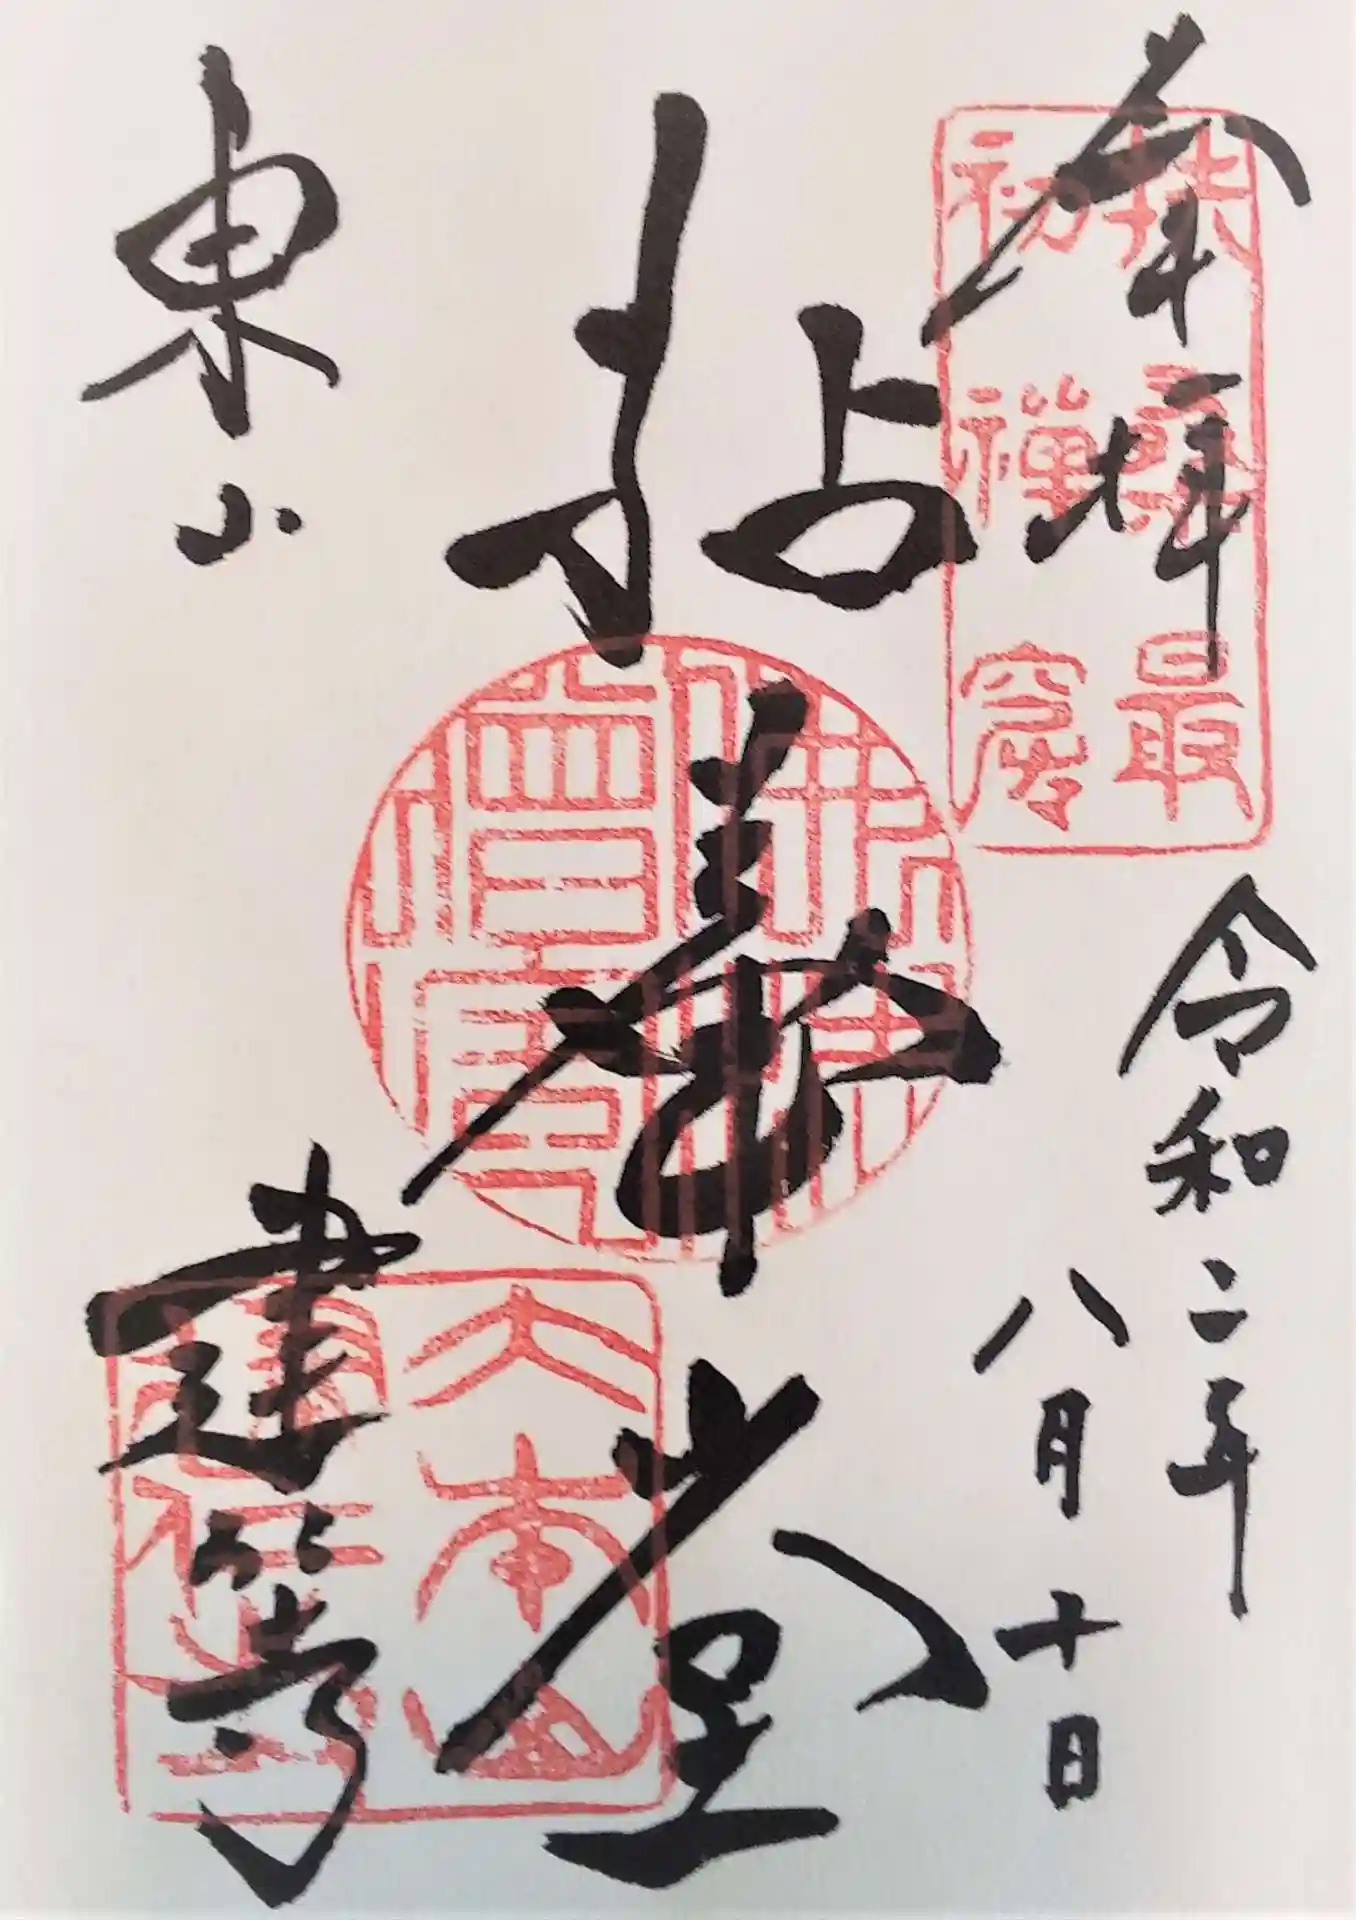 奉拝
扶桑最
初禪窟
令和二年
八月十日
拈華堂
佛法
僧寶
東山
建仁寺
大本山
建仁寺